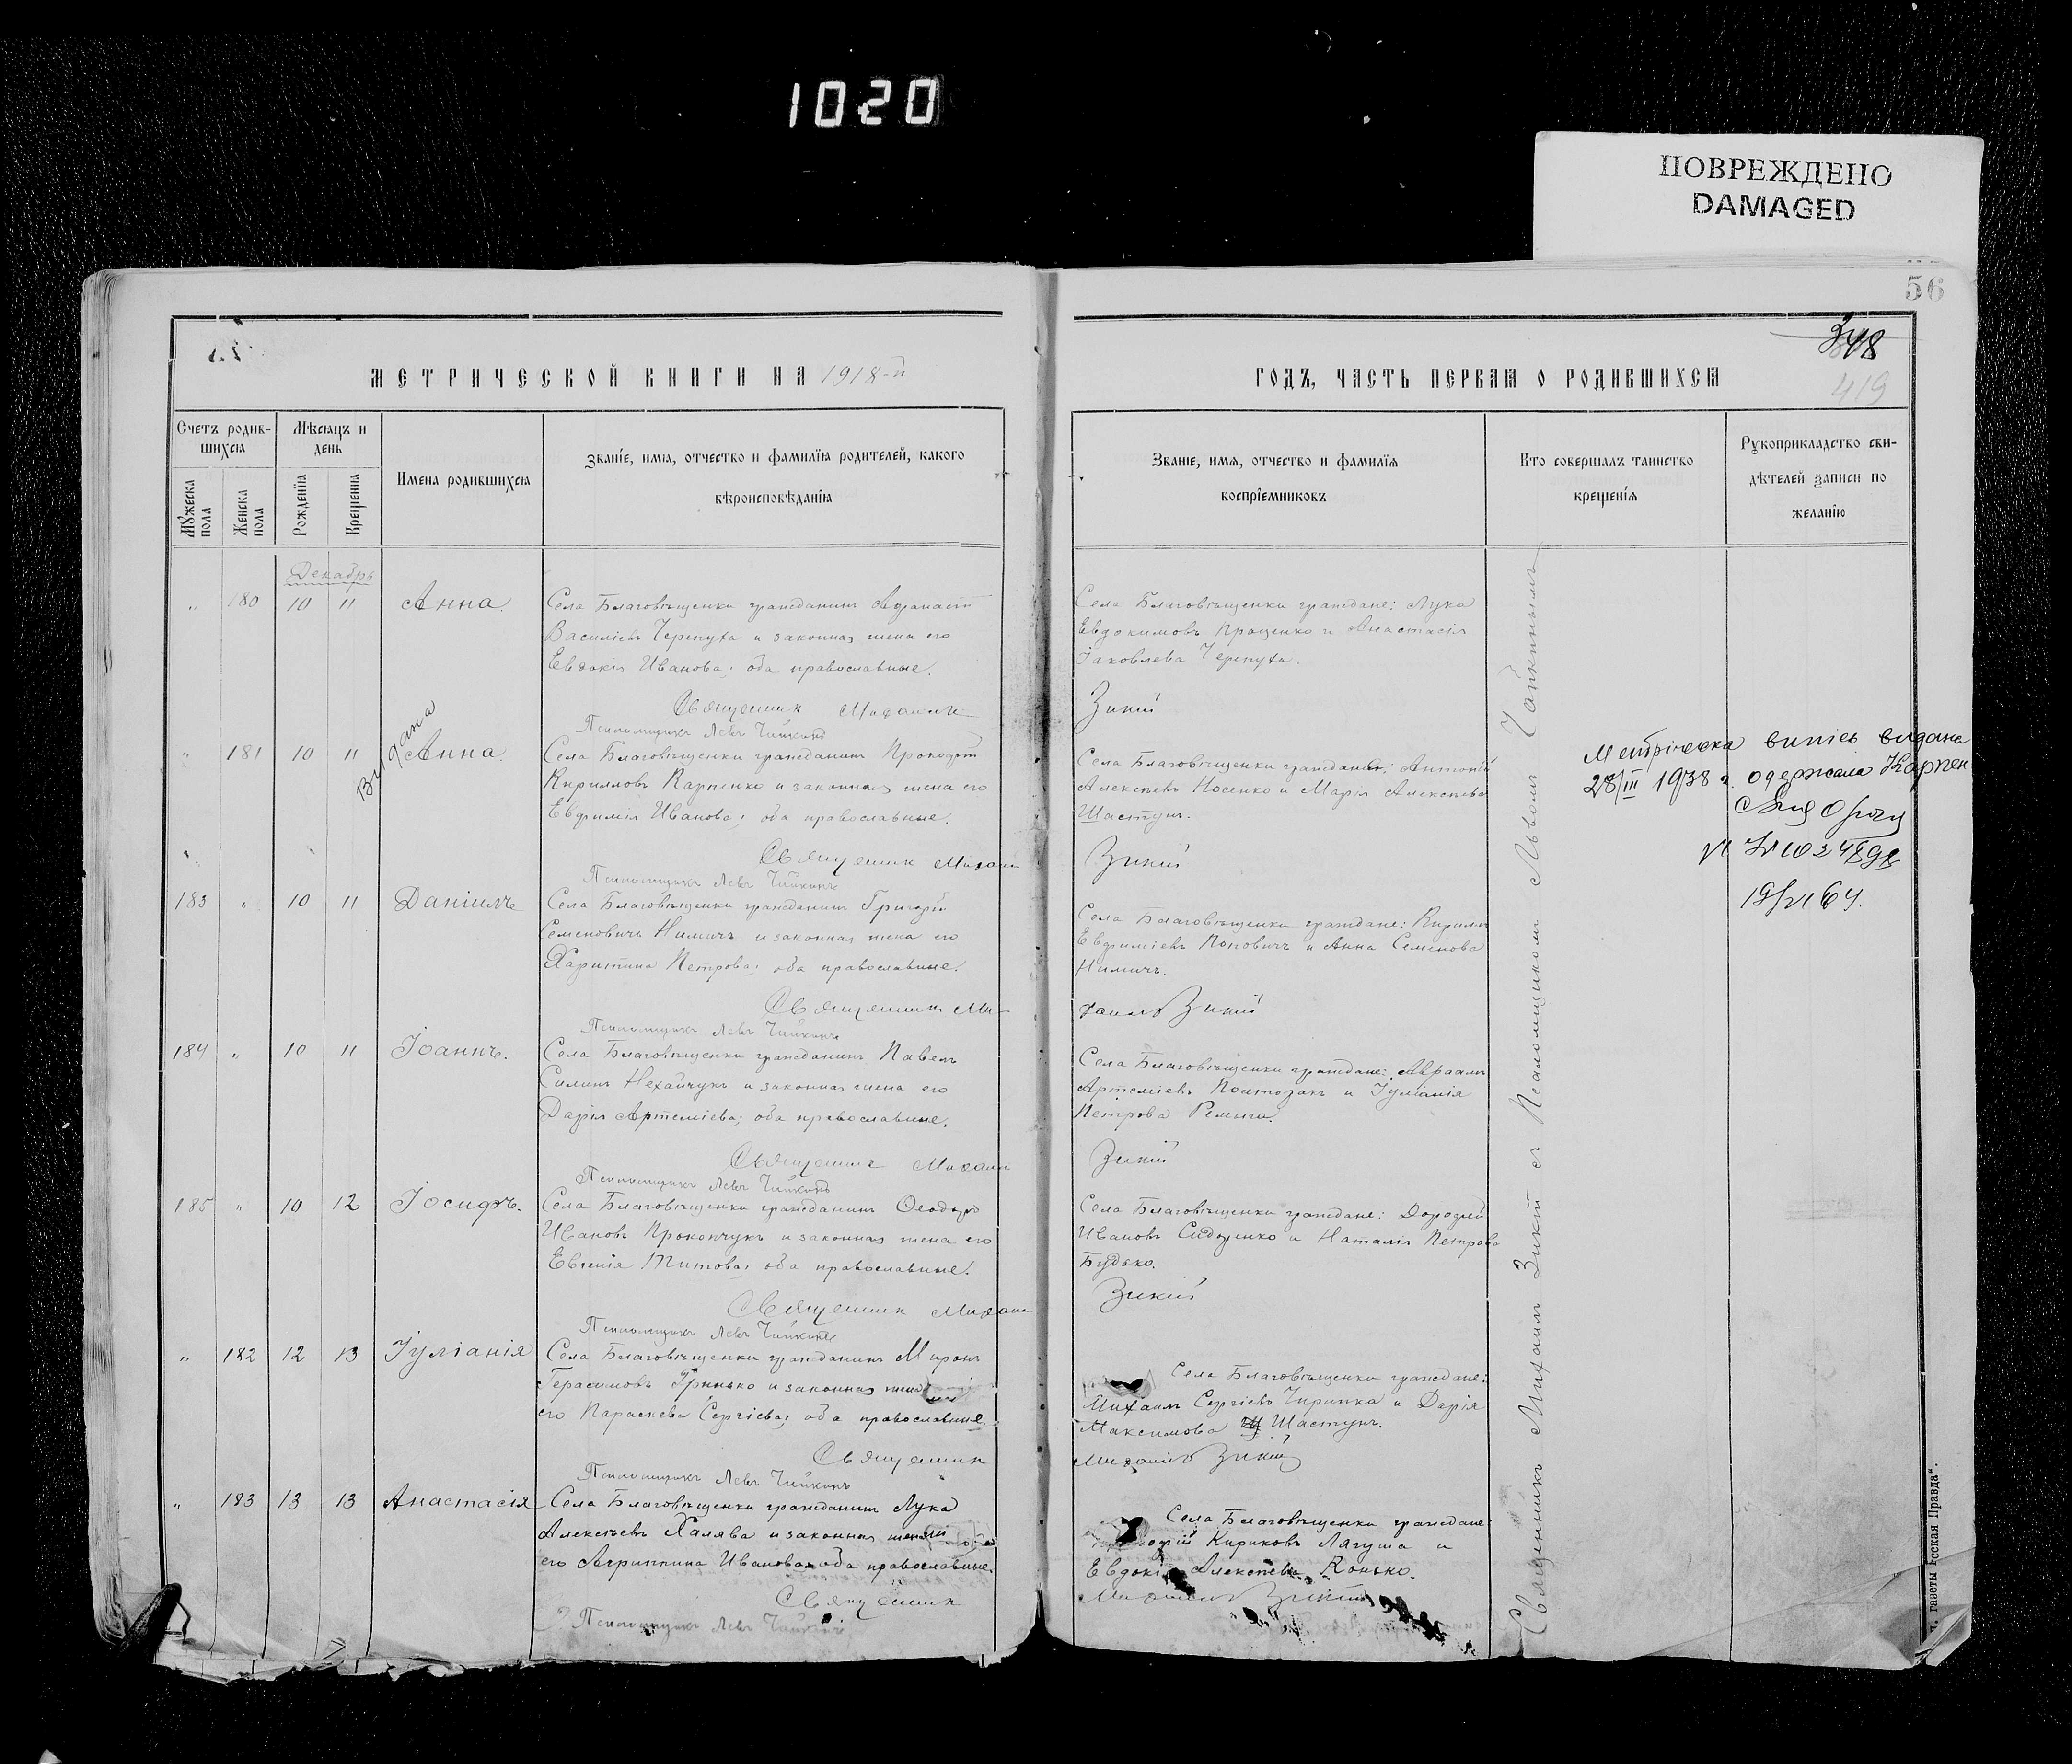 1020
ПОВРЕЖДЕНО
DAMAGED
56
348
419
МЕТРИЧЕСКОЙ КНИГИ НА 1918-й
ГОДЪ, ЧАСТЬ ПЕРВАЯ О РОДИВШИХСЯ
Счетъ родившихся
Мужеска пола
Женска пола
Мѣсяцъ и день
Рожденія
Крещенія
Имена родившихся
Званіе, имя, отчество и фамилія родителей, какого
вѣроисповѣданія
Званіе, имя, отчество и фамилія
воспріемниковъ
Кто совершалъ таинство
крещенія
Рукоприкладство сви-
дѣтелей записи по
желанію
Декабрь
" 180 10 11 Анна.
Села Благовѣщенки гражданинъ Афанасій
Василіевъ Черепуха и законная жена его
Евдокія Иванова; оба православные.
Села Благовѣщенки граждане: Лука
Евдокимовъ Проценко и Анастасія
Іаковлева Черепуха.
Священник Михаилъ Зикій
Псаломщикъ Левъ Чайкинъ
Видана
" 181 10 11 Анна.
Села Благовѣщенки гражданинъ Прокофій
Кирилловъ Карпенко и законная жена его
Евфимія Иванова; оба православные.
Села Благовѣщенки граждане: Антоній
Алексѣевъ Носенко и Марія Алексѣева
Шастунъ.
Метрическа випісь видана
28/III 1938 г. одержала Карпен
Священик Михаил Зикій
Псаломщикъ Левъ Чайкинъ
183 " 10 11 Даніилъ
Села Благовѣщенки гражданинъ Григорій
Семеновичъ Нимичъ и законная жена его
Харитина Петрова; оба православные.
Села Благовѣщенки граждане: Кириллъ
Евфиміевъ Поповичъ и Анна Семенова
Нимичъ.
Священник Михаилъ Зикій
Псаломщикъ Левъ Чайкинъ
184 " 10 11 Іоаннъ.
Села Благовѣщенки гражданинъ Павелъ
Силинъ Нехайчукъ и законная жена его
Дарія Артеміева; оба православные.
Села Благовѣщенки граждане: Авраамъ
Артеміевъ и Іуліанія
Петрова Ремыга.
Священник Михаил Зикій
Псаломщикъ Левъ Чайкинъ
185 " 10 12 Іосифъ.
Села Благовѣщенки гражданинъ Ѳеодоръ
Ивановъ Прокопчукъ и законная жена его
Евгенія Титова; оба православные.
Села Благовѣщенки граждане: Дорофей
Ивановъ Сидоренко и Наталія Петрова
Будько.
Священник Михаил Зикій
Псаломщикъ Левъ Чайкинъ
" 182 12 13 Іуліанія
Села Благовѣщенки гражданинъ Миронъ
Герасимовъ Гринько и законная жена
его Параскева Сергіева; оба православные.
Села Благовѣщенки граждане:
Михаилъ Сергіевъ Чирипка и Дарія
Максимова Шастунъ.
Священник Михаилъ Зикій
Псаломщикъ Левъ Чайкинъ
" 183 13 13 Анастасія
Села Благовѣщенки гражданинъ Лука
Алексѣевъ Халява и законная жена
его Агриппина Иванова оба православные.
Села Благовѣщенки граждане
Кириковъ Лягуша и
Евдокія Алексѣева Конько.
Священник Михаилъ Зикій
Псаломщикъ Левъ Чайкинъ
Священникъ Михаилъ Зикій съ Псаломщикомъ Львомъ Чайкинымъ